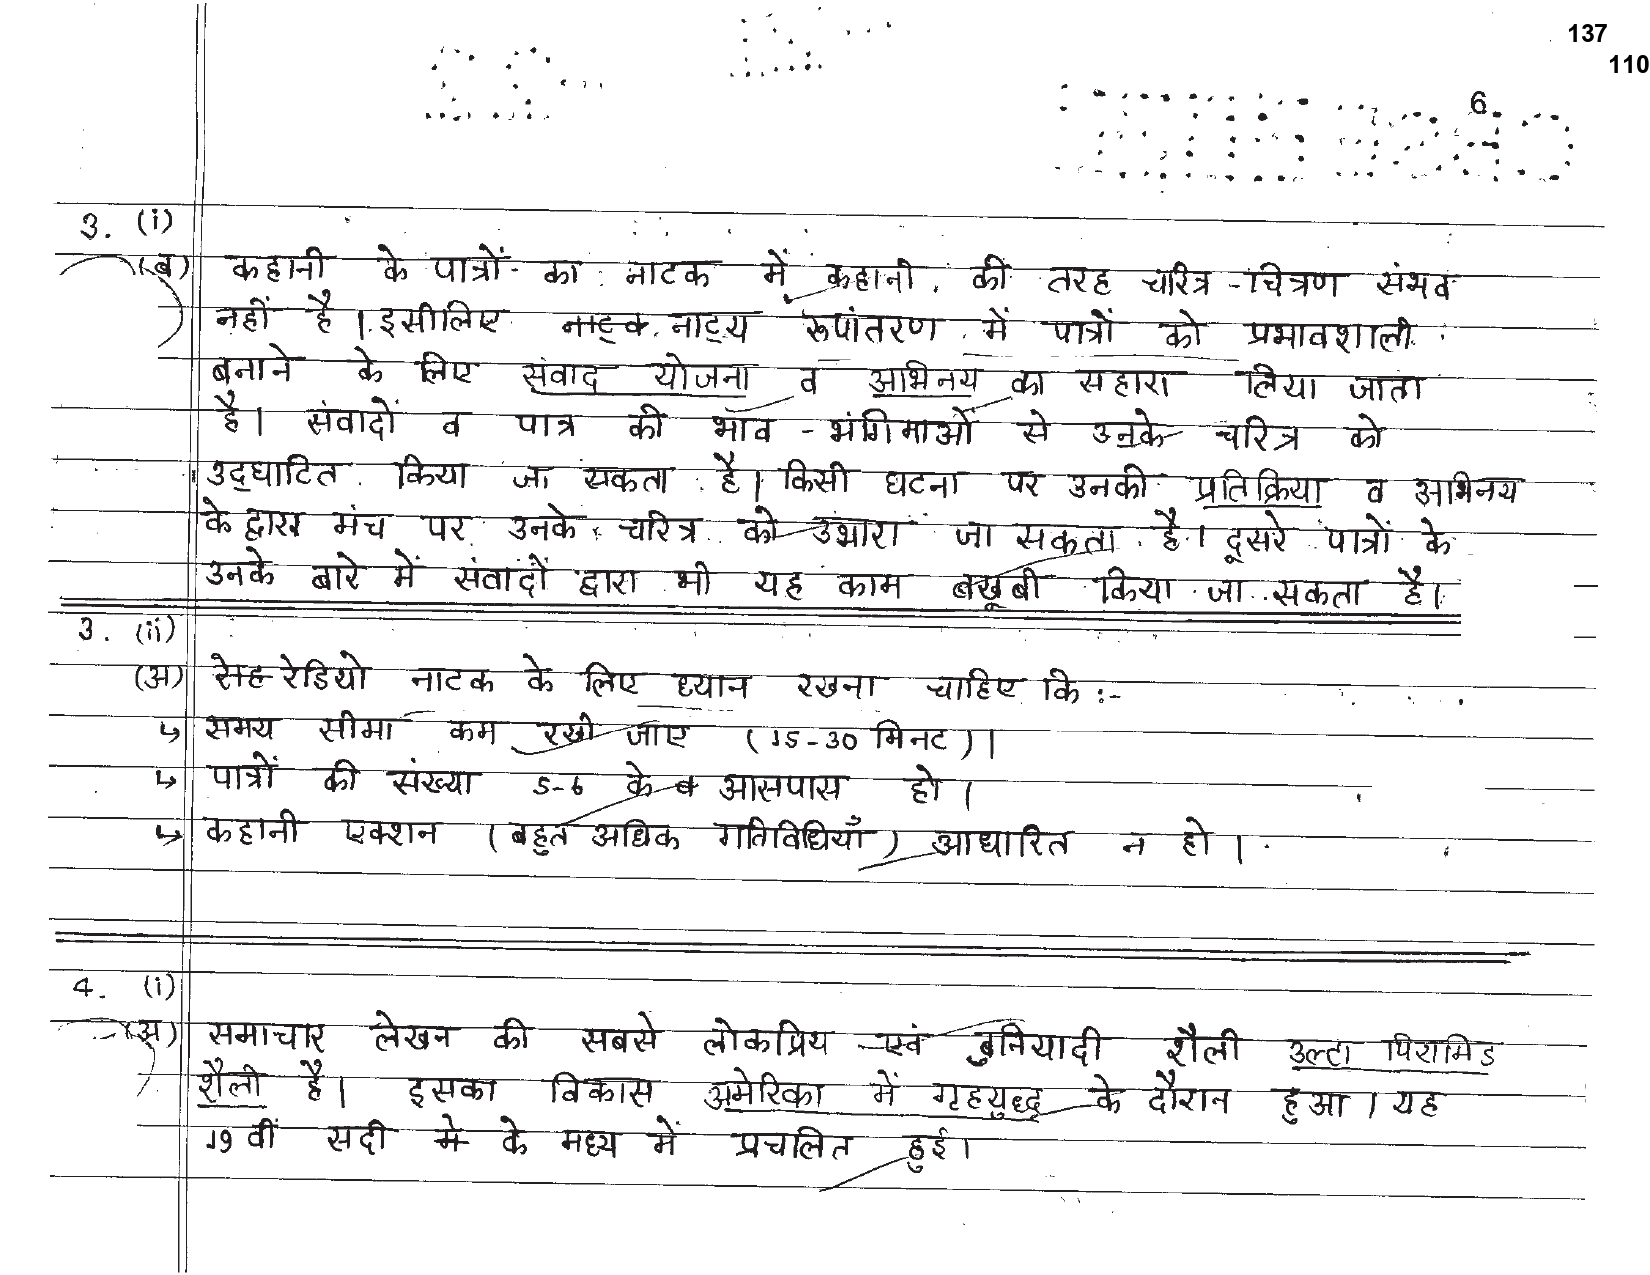 137
110
6
3. (i)
(ब) कहानी के पात्रों का नाटक में कहानी की तरह चरित्र-चित्रण संभव
नहीं है। इसीलिए नाट्क नाट्य रूपांतरण में पात्रों को प्रभावशाली
बनाने के लिए संवाद योजना व अभिनय का सहारा लिया जाता
है। संवादों व पात्र की भाव-भंगिमाओं से उनके चरित्र को
उद्घाटित किया जा सकता है। किसी घटना पर उनकी प्रतिक्रिया व अभिनय
के द्वारा मंच पर उनके चरित्र को उभारा जा सकता है। दूसरे पात्रों के
उनके बारे में संवादों द्वारा भी यह काम बखूबी किया जा सकता है।
3. (ii)
(अ) रेडियो नाटक के लिए ध्यान रखना चाहिए कि :-
↳ समय सीमा कम रखी जाए (15-30 मिनट)।
↳ पात्रों की संख्या 5-6 के आसपास हो।
↳ कहानी एक्शन (बहुत अधिक गतिविधियाँ) आधारित न हो।
4. (i)
(अ) समाचार लेखन की सबसे लोकप्रिय एवं बुनियादी शैली उल्टा पिरामिड
शैली है। इसका विकास अमेरिका में गृहयुद्ध के दौरान हुआ। यह
19वीं सदी मे के मध्य में प्रचलित हुई।